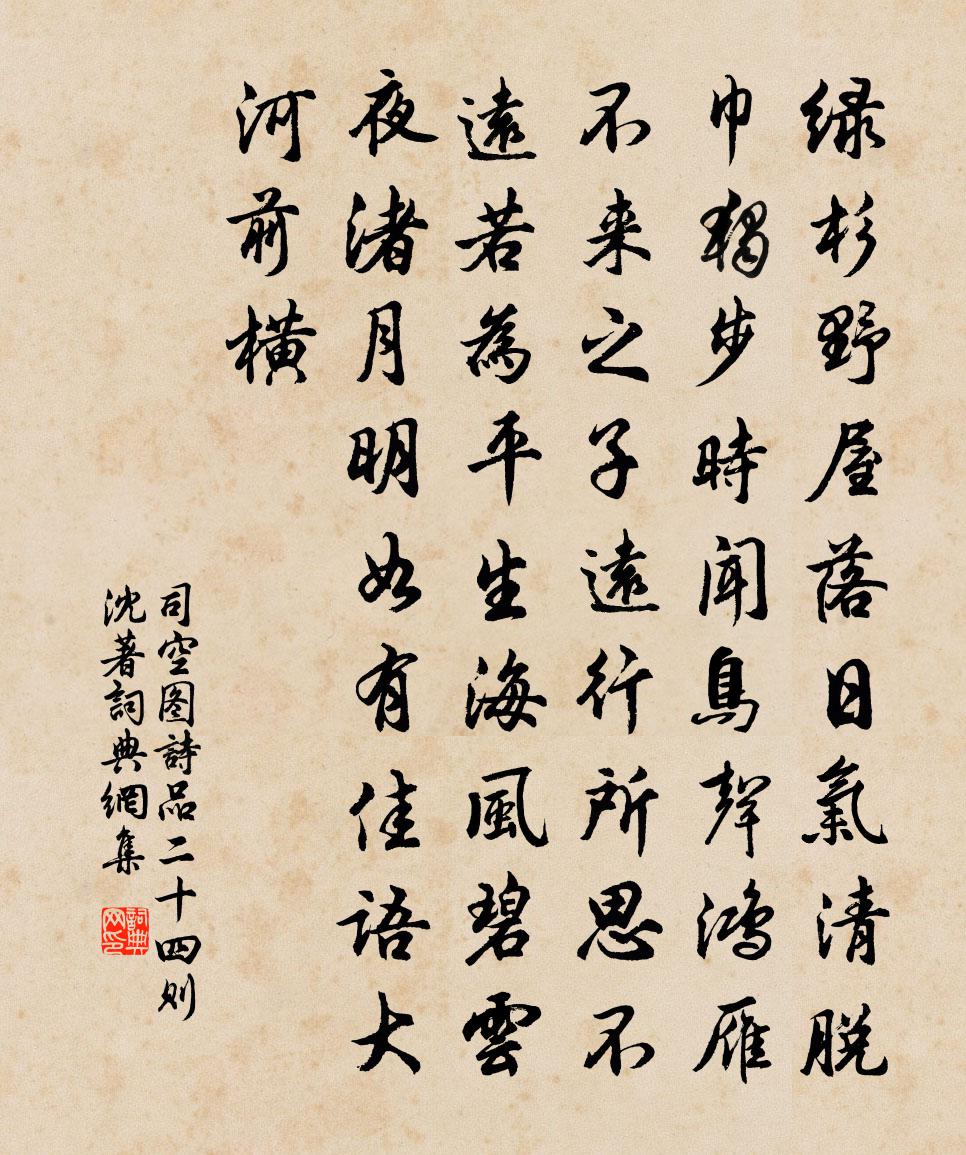 绿杉野屋落日氣清脱
巾獨步時聞鳥聲鴻雁
不来之子遠行所思不
遠若為平生海風碧雲
夜渚月明如有佳語大
河前橫
司空图詩品二十四则
沈著詞典網集
詞典
网印